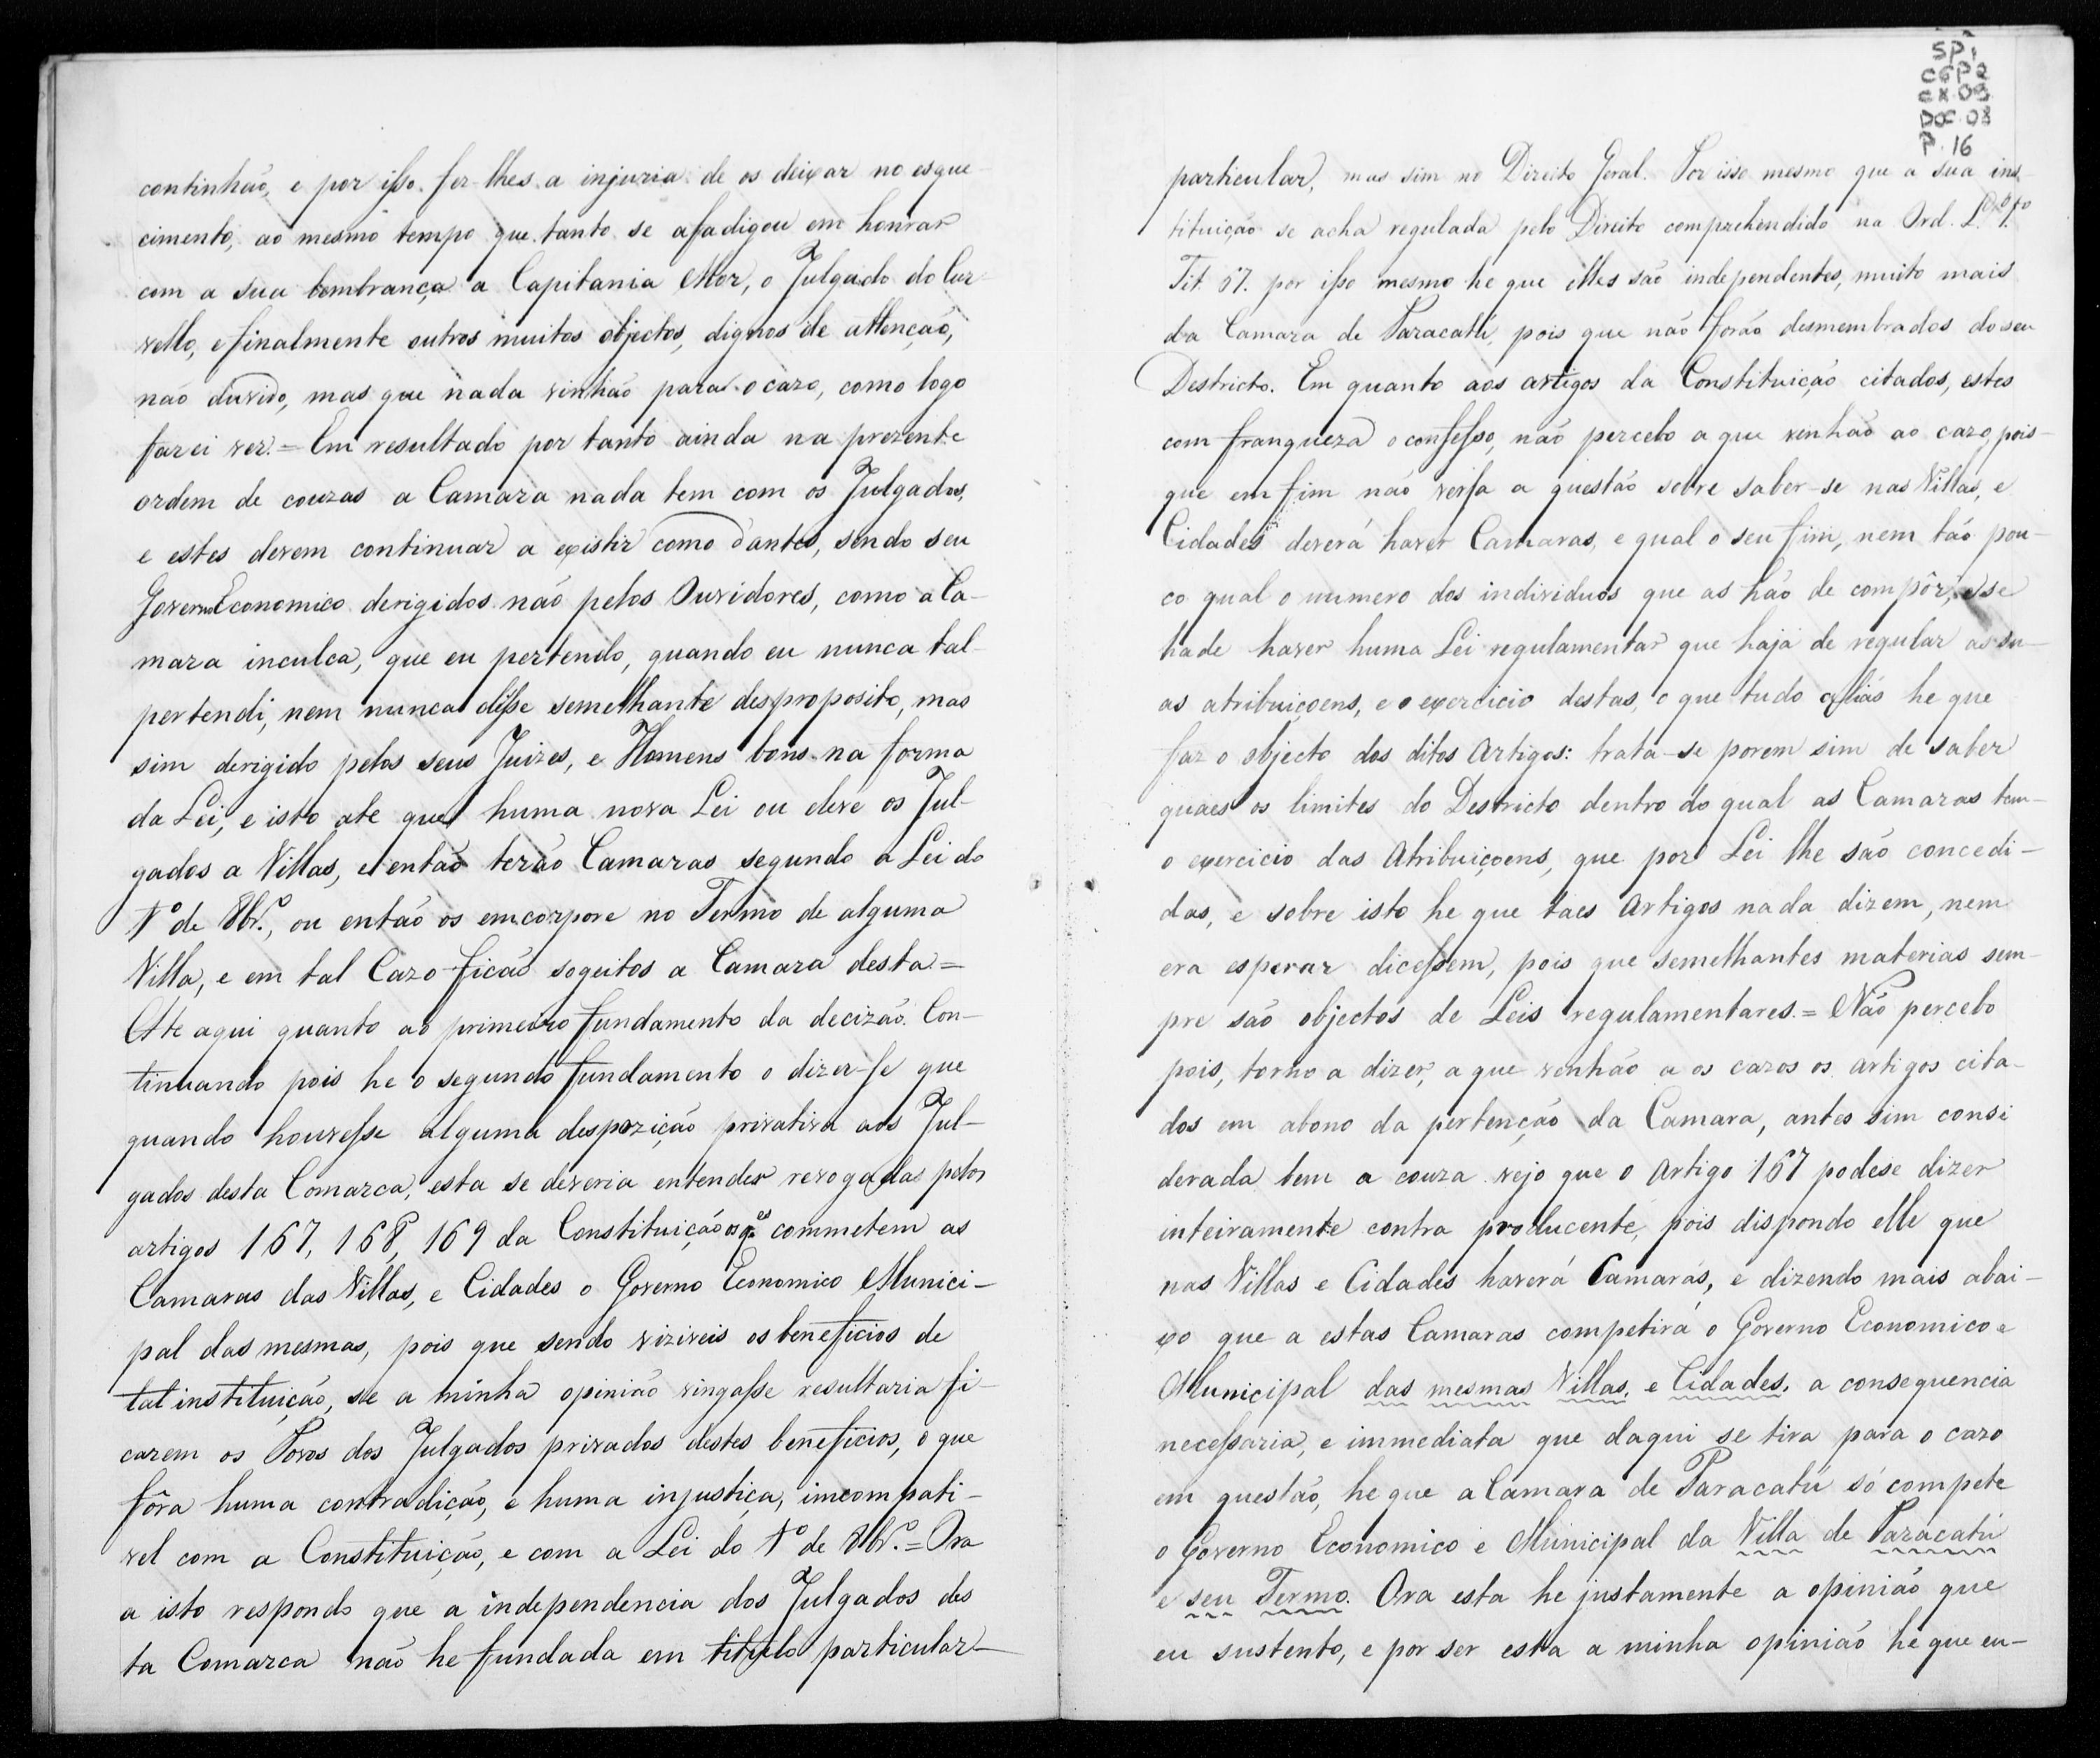 continhão, e por isso fez-lhes a injuria de os deixar no esque-
cimento, ao mesmo tempo que tanto se afadigou em honrar
com a sua lembrança a Capitania Mor, o Julgado do Cur-
vello, e finalmente outros muitos objectos, dignos de attenção,
não duvido, mas que nada vinhão para o cazo, como logo
farei ver. = Em resultado por tanto ainda na prezente
ordem de couzas a Camara nada tem com os Julgados,
e estes devem continuar a existir como d'antes, sendo seu
Governo Economico derigidos não pelos Ouvidores, como a Ca-
mara inculca, que eu pertendo, quando eu nunca tal
pertendi, nem nunca disse semelhante desproposito, mas
sim derigido pelos seus Juizes, e Homens bons na forma
da Lei, e isto ate que huma nova Lei ou eleve os Jul-
gados a Villas, e então terão Camaras segundo a Lei do
1º de 8br.º, ou então os emcorpore no Termo de alguma
Villa, e em tal Cazo ficão sogeitos a Camara desta =
Ate aqui quanto ao primeiro fundamento da decizão. Con-
tinuando pois he o segundo fundamento o dizer-se que
quando houvesse alguma despozição privativa aos Jul-
gados desta Comarca, esta se deveria entender revogadas pelos
artigos 167, 168, 169 da Constituição os q.es commetem as
Camaras das Villas, e Cidades o Governo Economico Munici-
pal das mesmas, pois que sendo viziveis os beneficios de
tal instituição, se a minha opinião vingasse resultaria fi-
carem os Povos dos Julgados privados destes beneficios, o que
fôra huma contradição, e huma injustiça, imcompati-
vel com a Constituição, e com a Lei do 1º de 8br.º = Ora
a isto respondo que a independencia dos Julgados des
ta Comarca não he fundada em titulo particular
SP1
CGP2
CX.08
DOC.08
P.16
particular, mas sim no Direito Geral. Por isso mesmo que a sua ins-
tituição se acha regulada pelo Direito comprehendido na Ord. L.º 1.º
Tit. 67. por isso mesmo he que elles são independentes, muito mais
da Camara de Paracatú, pois que não forão desmembrados do seu
Destricto. Em quanto aos artigos da Constituição citados, estes
com franqueza o confesso, não percebo a que venhão ao cazo, pois-
que em fim não versa a questão sobre saber-se nas Villas, e
Cidades deverá haver Camaras, e qual o seu fim, nem tão pou-
co qual o numero dos individuos que as hão de compôr, e se
hade haver huma Lei regulamentar que haja de regular as su-
as atribuiçoens, e o exercicio destas, o que tudo aliás he que
faz o objecto dos ditos Artigos: trata-se porem sim de saber
quaes os limites do Destricto dentro do qual as Camaras tem
o exercicio das Atribuiçoens, que por Lei lhe são concedi-
das, e sobre isto he que taes Artigos nada dizem, nem
era esperar dicessem, pois que semelhantes materias sem-
pre são objectos de Leis regulamentares. = Não percebo
pois, torno a dizer, a que venhão a os cazos os artigos cita-
dos em abono da pertenção da Camara, antes sim consi
derada bem a couza vejo que o Artigo 167 podese dizer
inteiramente contra producente, pois dispondo elle que
nas Villas e Cidades haverá Camaras, e dizendo mais abai-
xo que a estas Camaras competirá o Governo Economico e
Municipal das mesmas Villas, e Cidades, a consequencia
necessaria, e immediata que daqui se tira para o cazo
em questão, he que a Camara de Paracatú só compete
o Governo Economico e Municipal da Villa de Paracatú
e seu Termo. Ora esta he justamente a opinião que
eu sustento, e por ser esta a minha opinião he que eu-